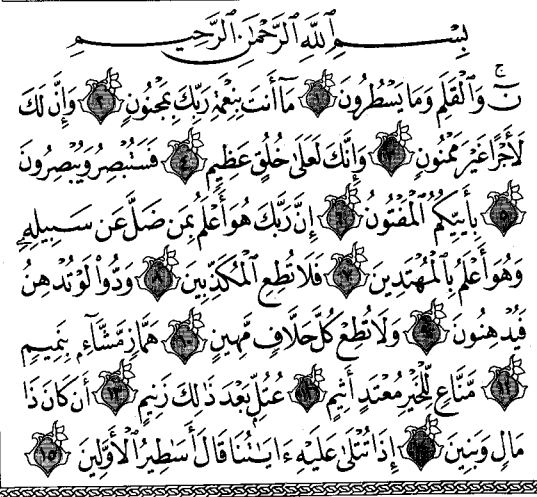 بِسْمِ ٱللَّهِ ٱلرَّحْمَٰنِ ٱلرَّحِيمِ
نٓ ۚ وَٱلْقَلَمِ وَمَا يَسْطُرُونَ ١ مَآ أَنتَ بِنِعْمَةِ رَبِّكَ بِمَجْنُونٍ ٢ وَإِنَّ لَكَ
لَأَجْرًا غَيْرَ مَمْنُونٍ ٣ وَإِنَّكَ لَعَلَىٰ خُلُقٍ عَظِيمٍ ٤ فَسَتُبْصِرُ وَيُبْصِرُونَ
٥ بِأَييِّكُمُ ٱلْمَفْتُونُ ٦ إِنَّ رَبَّكَ هُوَ أَعْلَمُ بِمَن ضَلَّ عَن سَبِيلِهِۦ
وَهُوَ أَعْلَمُ بِٱلْمُهْتَدِينَ ٧ فَلَا تُطِعِ ٱلْمُكَذِّبِينَ ٨ وَدُّوا۟ لَوْ تُدْهِنُ
فَيُدْهِنُونَ ٩ وَلَا تُطِعْ كُلَّ حَلَّافٍ مَّهِينٍ ١٠ هَمَّازٍ مَّشَّآءٍۭ بِنَمِيمٍ
١١ مَّنَّاعٍ لِّلْخَيْرِ مُعْتَدٍ أَثِيمٍ ١٢ عُتُلٍّۭ بَعْدَ ذَٰلِكَ زَنِيمٍ ١٣ أَن كَانَ ذَا
مَالٍ وَبَنِينَ ١٤ إِذَا تُتْلَىٰ عَلَيْهِ ءَايَٰتُنَا قَالَ أَسَٰطِيرُ ٱلْأَوَّلِينَ ١٥